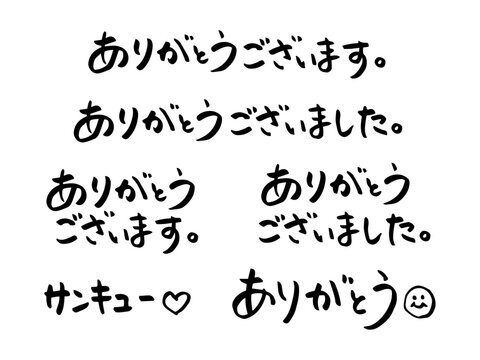 ありがとうございます。
ありがとうございました。
ありがとう
ございます。
ありがとう
ございました。
サンキュー♡
ありがとう